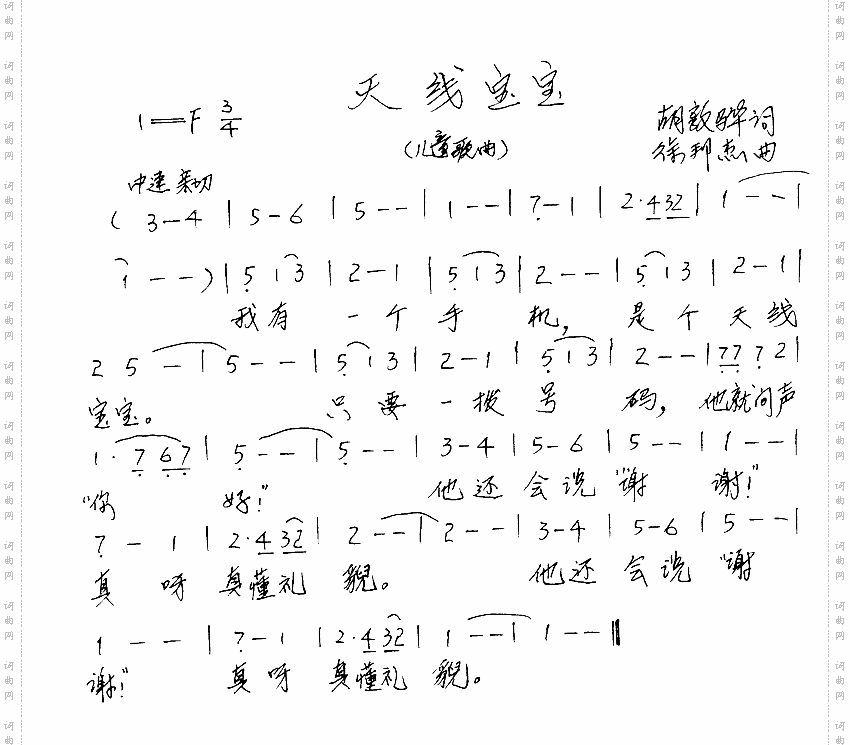 天线宝宝
1=F 3/4
(儿童歌曲)
胡敦骅词
徐邦杰曲
中速 亲切
( 3 - 4 | 5 - 6 | 5 - - | 1 - - | 7 - 1 | 2· 4 3 2 | 1 - - |
1 - - ) | 5 1 3 | 2 - 1 | 5 1 3 | 2 - - | 5 1 3 | 2 - 1 |
我有 一个手 机, 是个天线
2 5 - | 5 - - | 5 1 3 | 2 - 1 | 5 1 3 | 2 - - | 7 7 7 2 |
宝宝。 只要一拨号 码, 他就问声
1· 7 6 7 | 5 - - | 5 - - | 3 - 4 | 5 - 6 | 5 - - | 1 - - |
"你 好!" 他还会说"谢 谢!"
7 - 1 | 2· 4 3 2 | 2 - - | 2 - - | 3 - 4 | 5 - 6 | 5 - - |
真呀真懂礼貌。 他还会说"谢
1 - - | 7 - 1 | 2· 4 3 2 | 1 - - | 1 - - ‖
谢!" 真呀真懂礼貌。
词曲网